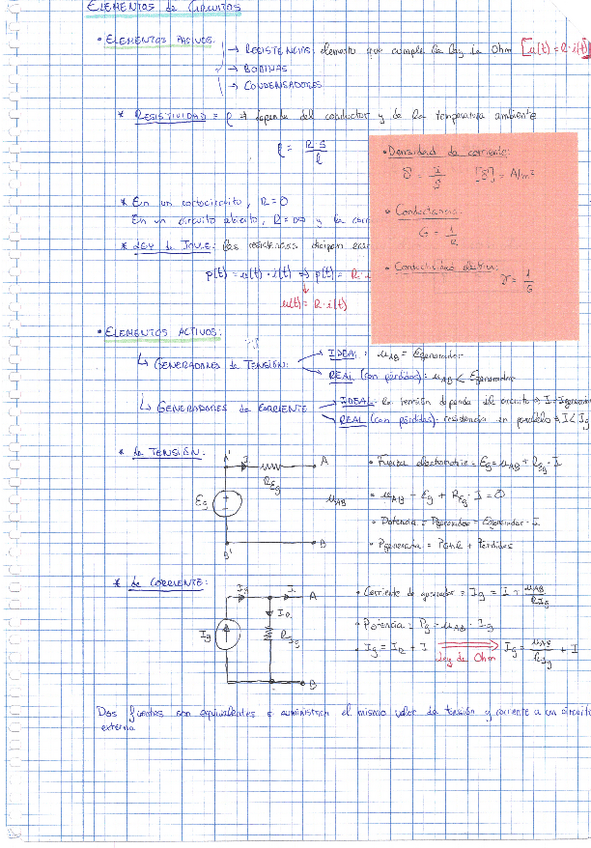 ELEMENTOS de CIRCUITOS
• ELEMENTOS PASIVOS:
→ RESISTENCIAS: elemento que cumple la ley de Ohm [u(t) = R·i(t)]
→ BOBINAS
→ CONDENSADORES
* RESISTIVIDAD = ρ → depende del conductor y de la temperatura ambiente
ρ = R·S / l
• Densidad de corriente:
δ = I / S [δ] = A/m²
• Conductancia:
G = 1 / R
• Conductividad eléctrica:
* En un cortocircuito, R = 0
En un circuito abierto, R = ∞ y la corr
* LEY de JOULE: las resistencias disipan
p(t) = u(t) · i(t) ⇒ p(t) = R·
u(t) = R·i(t)
• ELEMENTOS ACTIVOS:
↳ GENERADORES de TENSIÓN:
→ IDEAL: u_AB = Egenerador
→ REAL (con pérdidas): u_AB < Egenerador
↳ GENERADORES de CORRIENTE
→ IDEAL: la tensión depende del circuito
→ REAL (con pérdidas): resistencia en paralelo → I < Ig
* de TENSIÓN:
A' I A
R_Eg
Eg u_AB
B' B
• Fuerza electromotriz = Eg = u_AB + R_Eg · I
• u_AB - Eg + R_Eg · I = 0
• Potencia = Pgenerador = Egenerador · I
• Pgenerada = Pútil + Pérdidas
* de CORRIENTE:
Ig I A
I_R
Ig R_Ig
B
• Corriente de generador = Ig = I + u_AB / R_Ig
• Potencia = Pg = u_AB · Ig
• Ig = I_R + I ⇒ Ley de Ohm Ig = u_AB / R_Ig + I
Dos fuentes son equivalentes si suministran el mismo valor de tensión y corriente a un circuito
externa